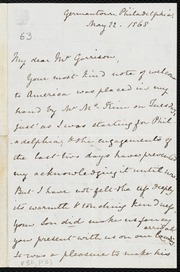 Germantown, Philadelphia,
May 22. 1868
63
My dear Mr Garrison,
Your most kind note of welcome
to America was placed in my
hand by Mr McKim on Tuesday
just as I was starting for Phil-
adelphia, & the engagements of
the last two days have prevented
my acknowledging it until now.
But I have not felt the less deeply
its warmth & touching kindness.
Your Son did make us for any
arrival
you present with us on our
It was a pleasure to make his